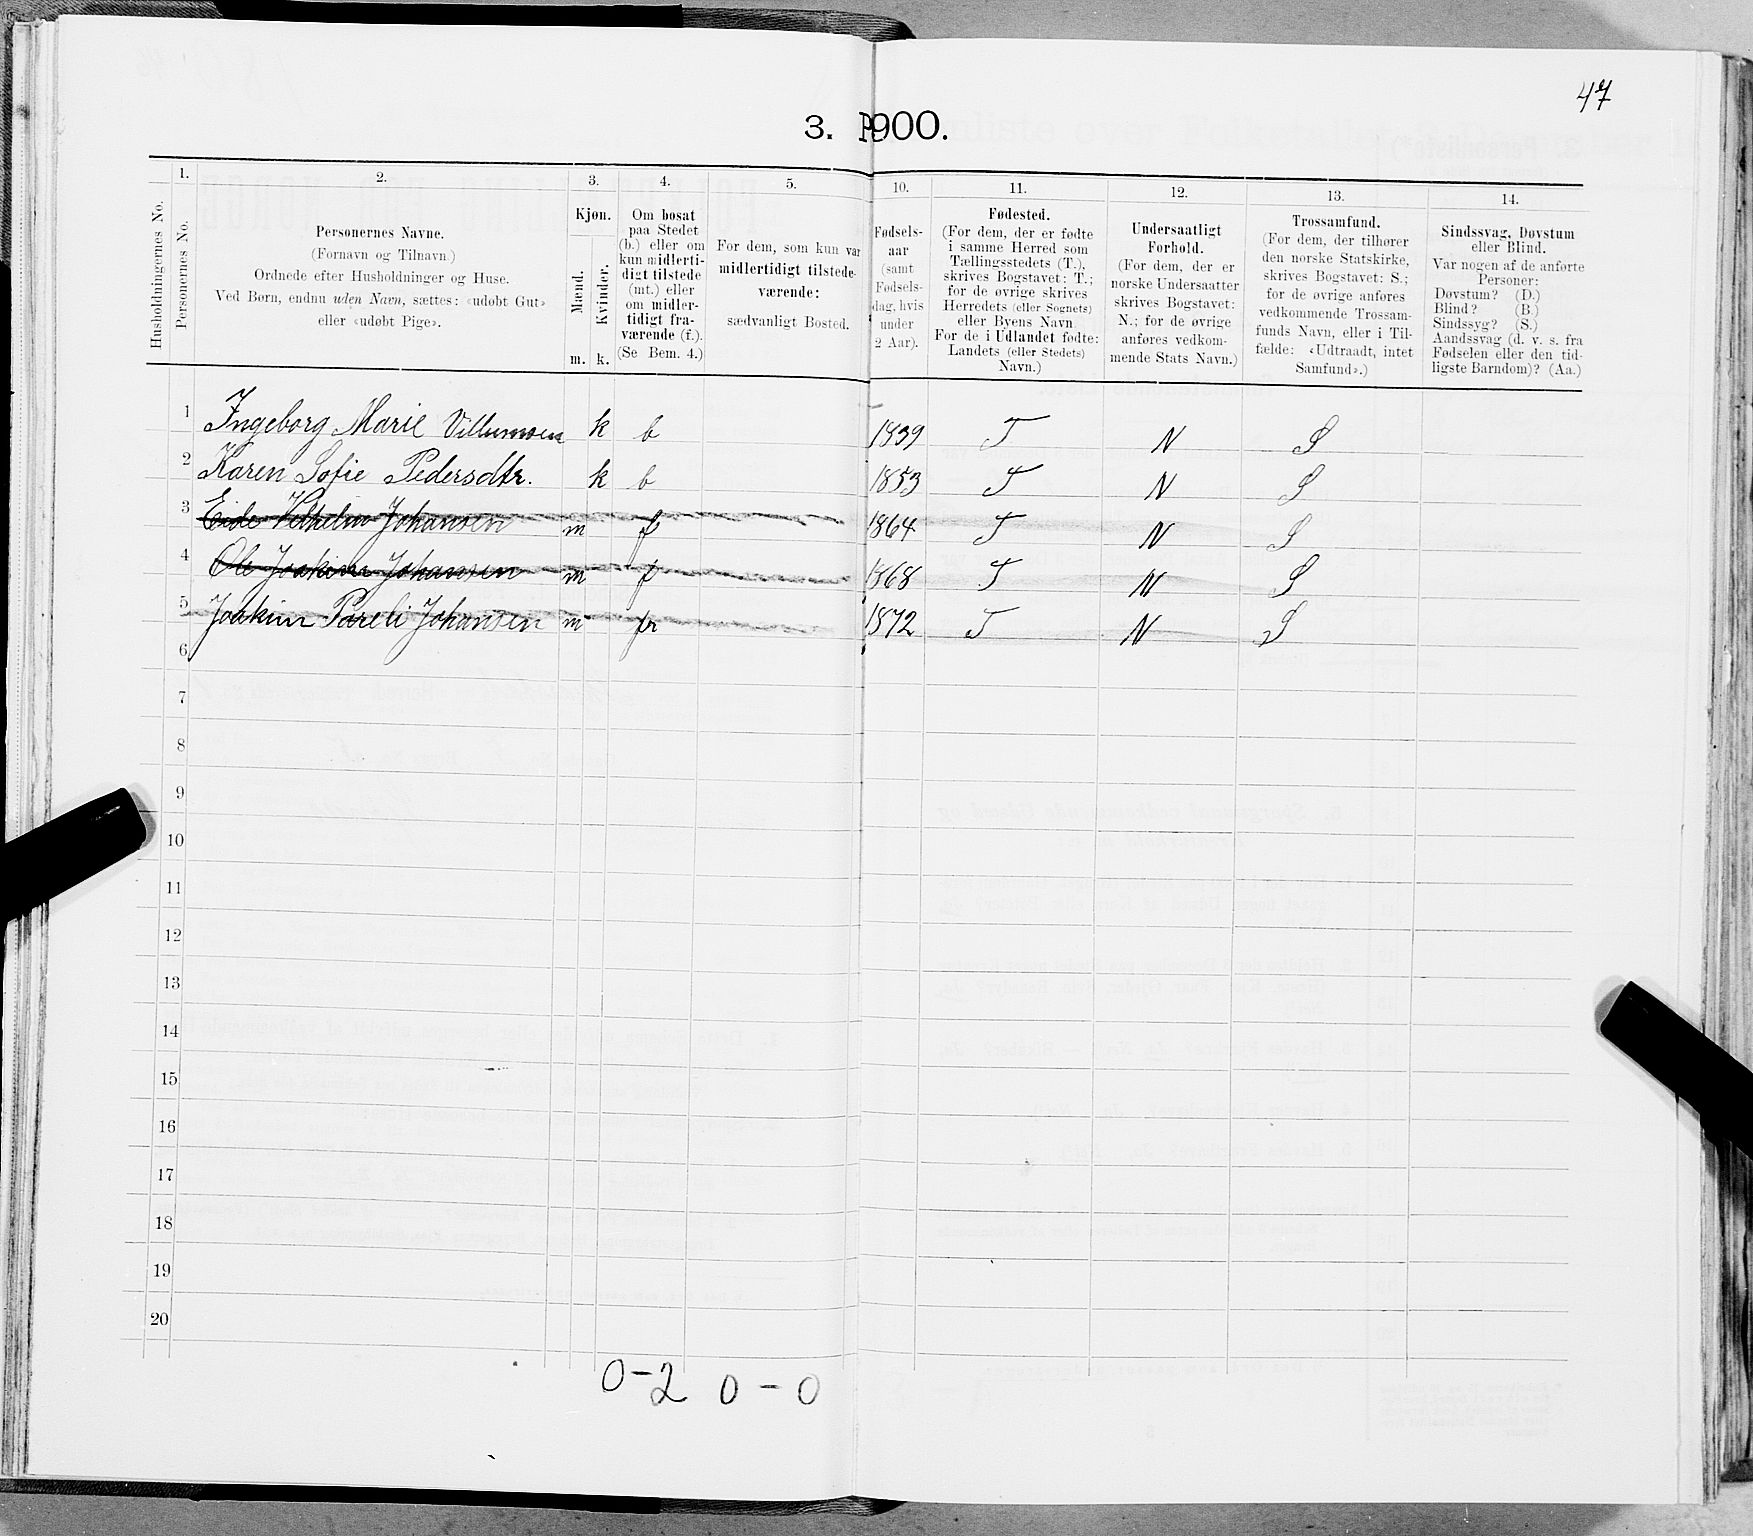 47
3. P900.
1. 2. 3. 4. 5. 10. 11. 12. 13. 14.
Husholdningernes No.
Personernes No.
Personernes Navne.
(Fornavn og Tilnavn.)
Ordnede efter Husholdninger og Huse.
Ved Børn, endnu uden Navn, sættes: «udøbt Gut»
eller «udøbt Pige».
Kjøn.
Mænd.
Kvinder.
m. k.
Om bosat
paa Stedet
(b.) eller om
kun midlerti-
digt tilstede
(mt.) eller
om midler-
tidigt fra-
værende (f.).
(Se Bem. 4.)
For dem, som kun var
midlertidigt tilstede-
værende:
sædvanligt Bosted.
Fødsels-
aar
(samt
Fødsels-
dag, hvis
under
2 Aar).
Fødested.
(For dem, der er fødte
i samme Herred som
Tællingsstedets (T.),
skrives Bogstavet: T.;
for de øvrige skrives
Herredets (eller Sognets)
eller Byens Navn.
For de i Udlandet fødte:
Landets (eller Stedets)
Navn.)
Undersaatligt
Forhold.
(For dem, der er
norske Undersaatter
skrives Bogstavet:
N.; for de øvrige
anføres vedkom-
mende Stats Navn.)
Trossamfund.
(For dem, der tilhører
den norske Statskirke,
skrives Bogstavet: S.;
for de øvrige anføres
vedkommende Trossam-
funds Navn, eller i Til-
fælde: «Udtraadt, intet
Samfund».)
Sindssvag, Døvstum
eller Blind.
Var nogen af de anførte
Personer:
Døvstum? (D.)
Blind? (B.)
Sindssyg? (S.)
Aandssvag (d. v. s. fra
Fødselen eller den tid-
ligste Barndom)? (Aa.)
1 Ingeborg Marie Villumsen k b 1839 T N S
2 Karen Sofie Pedersdtr. k b 1853 T N S
3 Eide Vilhelm Johansen m f 1864 T N S
4 Ole Joakim Johansen m f 1868 T N S
5 Joakim Pareli Johansen m fr 1872 T N S
6
7
8
9
10
11
12
13
14
15
16
17
18
19
20
0-2 0-0